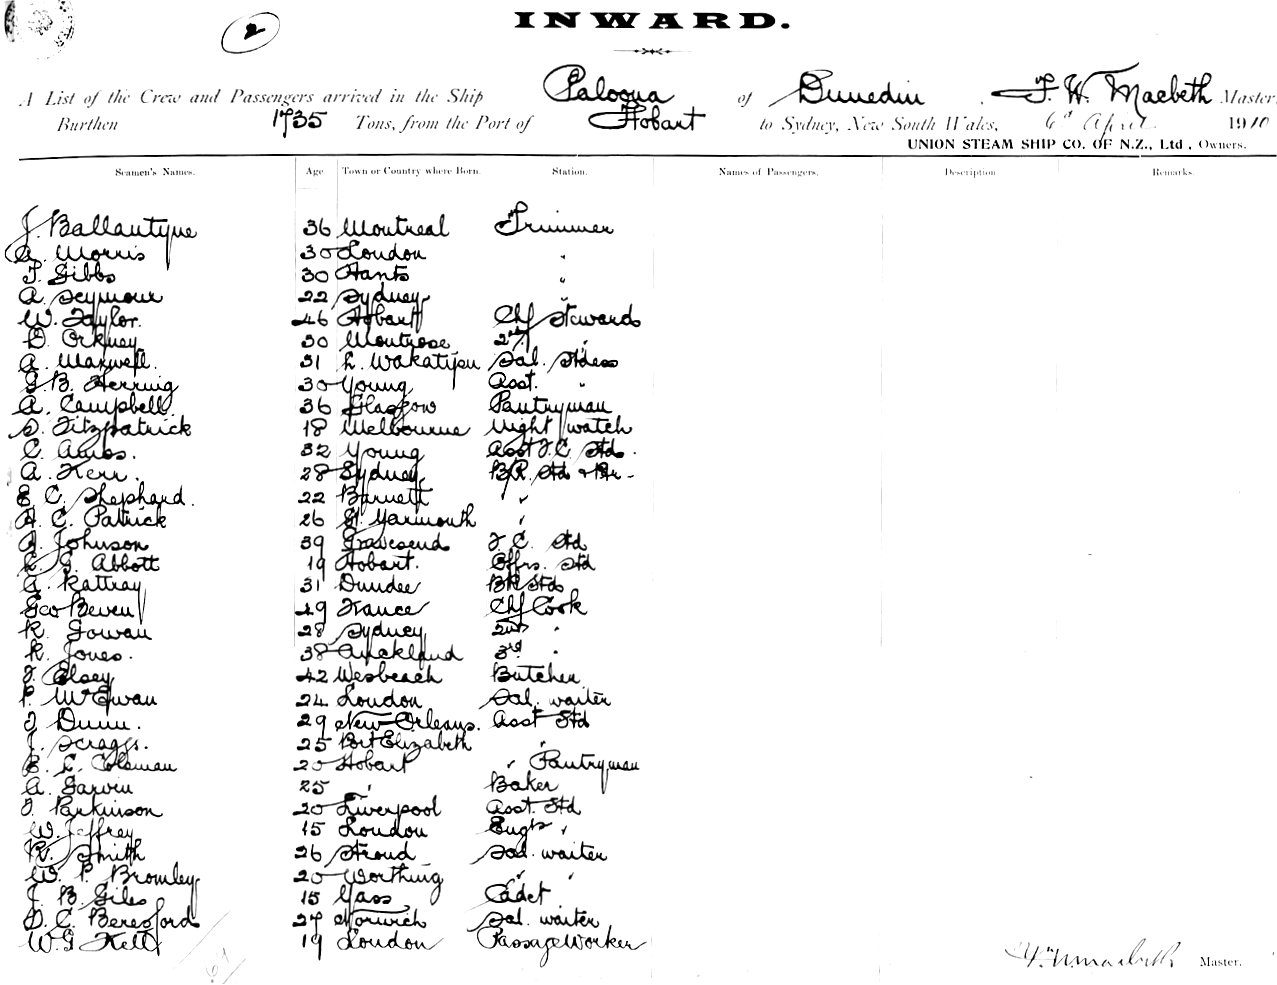 2
INWARD.
A List of the Crew and Passengers arrived in the Ship Paloona of Dunedin, F. W. Macbeth Master,
Burthen 1735 Tons, from the Port of Hobart to Sydney, New South Wales, 6th April 1910
UNION STEAM SHIP CO. OF N.Z., Ltd, Owners.
Seamen's Names. Age Town or Country where Born. Station. Names of Passengers. Description Remarks.
J. Ballantyne 36 Montreal Trimmer
A. Morris 30 London "
F. Gibbs 30 Hants "
A. Seymour 22 Sydney "
W. Taylor. 46 Hobart Chf Stewards
D. Orkney 30 Montrose 2nd "
A. Maxwell. 31 L. Wakatipu Sal. Stdess
G. B. Herring 30 Young Asst. "
A. Campbell. 36 Glasgow Pantryman
S. Fitzpatrick 18 Melbourne Night watch
C. Amos. 32 Young Asst F.C. Std.
A. Kerr. 28 Sydney B.R. Std & Br.
E C. Shephard. 22 Barnett " "
H. C. Patrick 26 Gt. Yarmouth "
A. Johnson 39 Gravesend F. C. Std
L. G. Abbott 19 Hobart. Offrs. Std
A. Rattray 31 Dundee BR Std
Geo Beven 49 France Chf Cook
R. Gowan 28 Sydney 2nd "
R. Jones. 38 Auckland 3rd "
J. Elsey 42 Wesbeach Butcher
P. McEwan 24 London Sal. waiter
J Dunn. 29 New Orleans. Asst Std
J. Scraggs. 25 Port Elizabeth "
E. L. Coleman 20 Hobart " Pantryman
A. Garvin 25 " Baker
J. Parkinson 20 Liverpool Asst. Std
W. Jeffrey 15 London Engrs "
R. Smith 26 Stroud Sal. waiter
W. P. Bromley 20 Worthing " "
J. B. Giles 15 Yass Cadet
D. C. Beresford 27 Norwich Sal. waiter
W. G Kett 19 London Passage Worker
F. W. Macbeth Master.